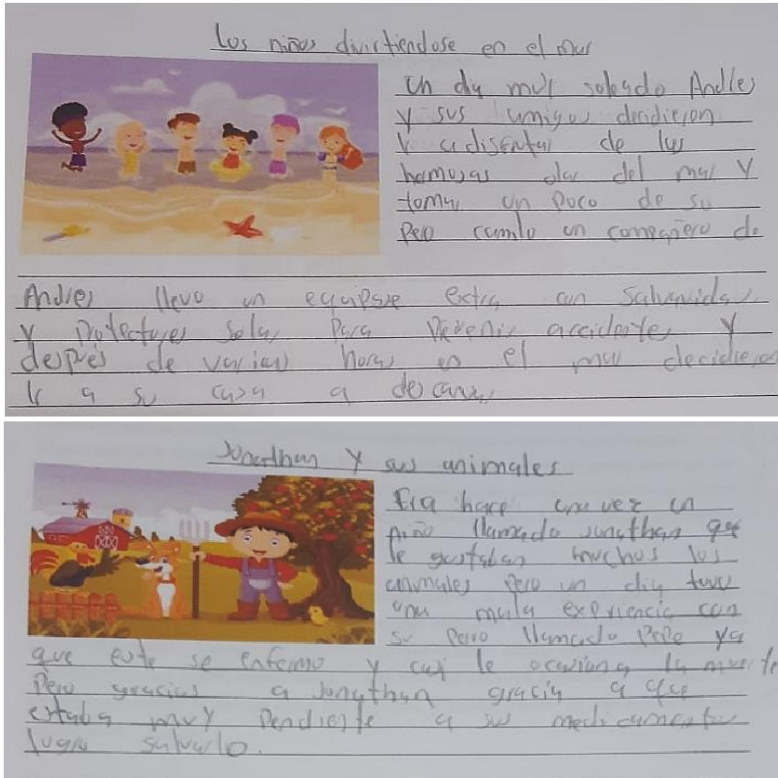 Los niños divirtiendose en el mar
Un dia muy soleado Andres
y sus amigos decidieron
Ir a disfrutar de las
hermosas olas del mar y
tomar un poco de su
Pero cuando un compañero de
Andres llevo un equipaje extra con salvavidas
y Protectores solar Para Prevenir accidentes y
despés de varias horas en el mar decidieron
Ir a su casa a descanzar
Jonathan y sus animales
Era hace una vez un
niño llamado Jonathan que
le gustaban muchos los
animales Pero un dia tuvo
una mala experiencia con
su Perro llamado Pepe ya
que este se enfermo y casi le ocasiona la muerte
Pero gracias a Jonathan gracia a que
estaba muy Pendiente a sus medicamentos
logro salvarlo.